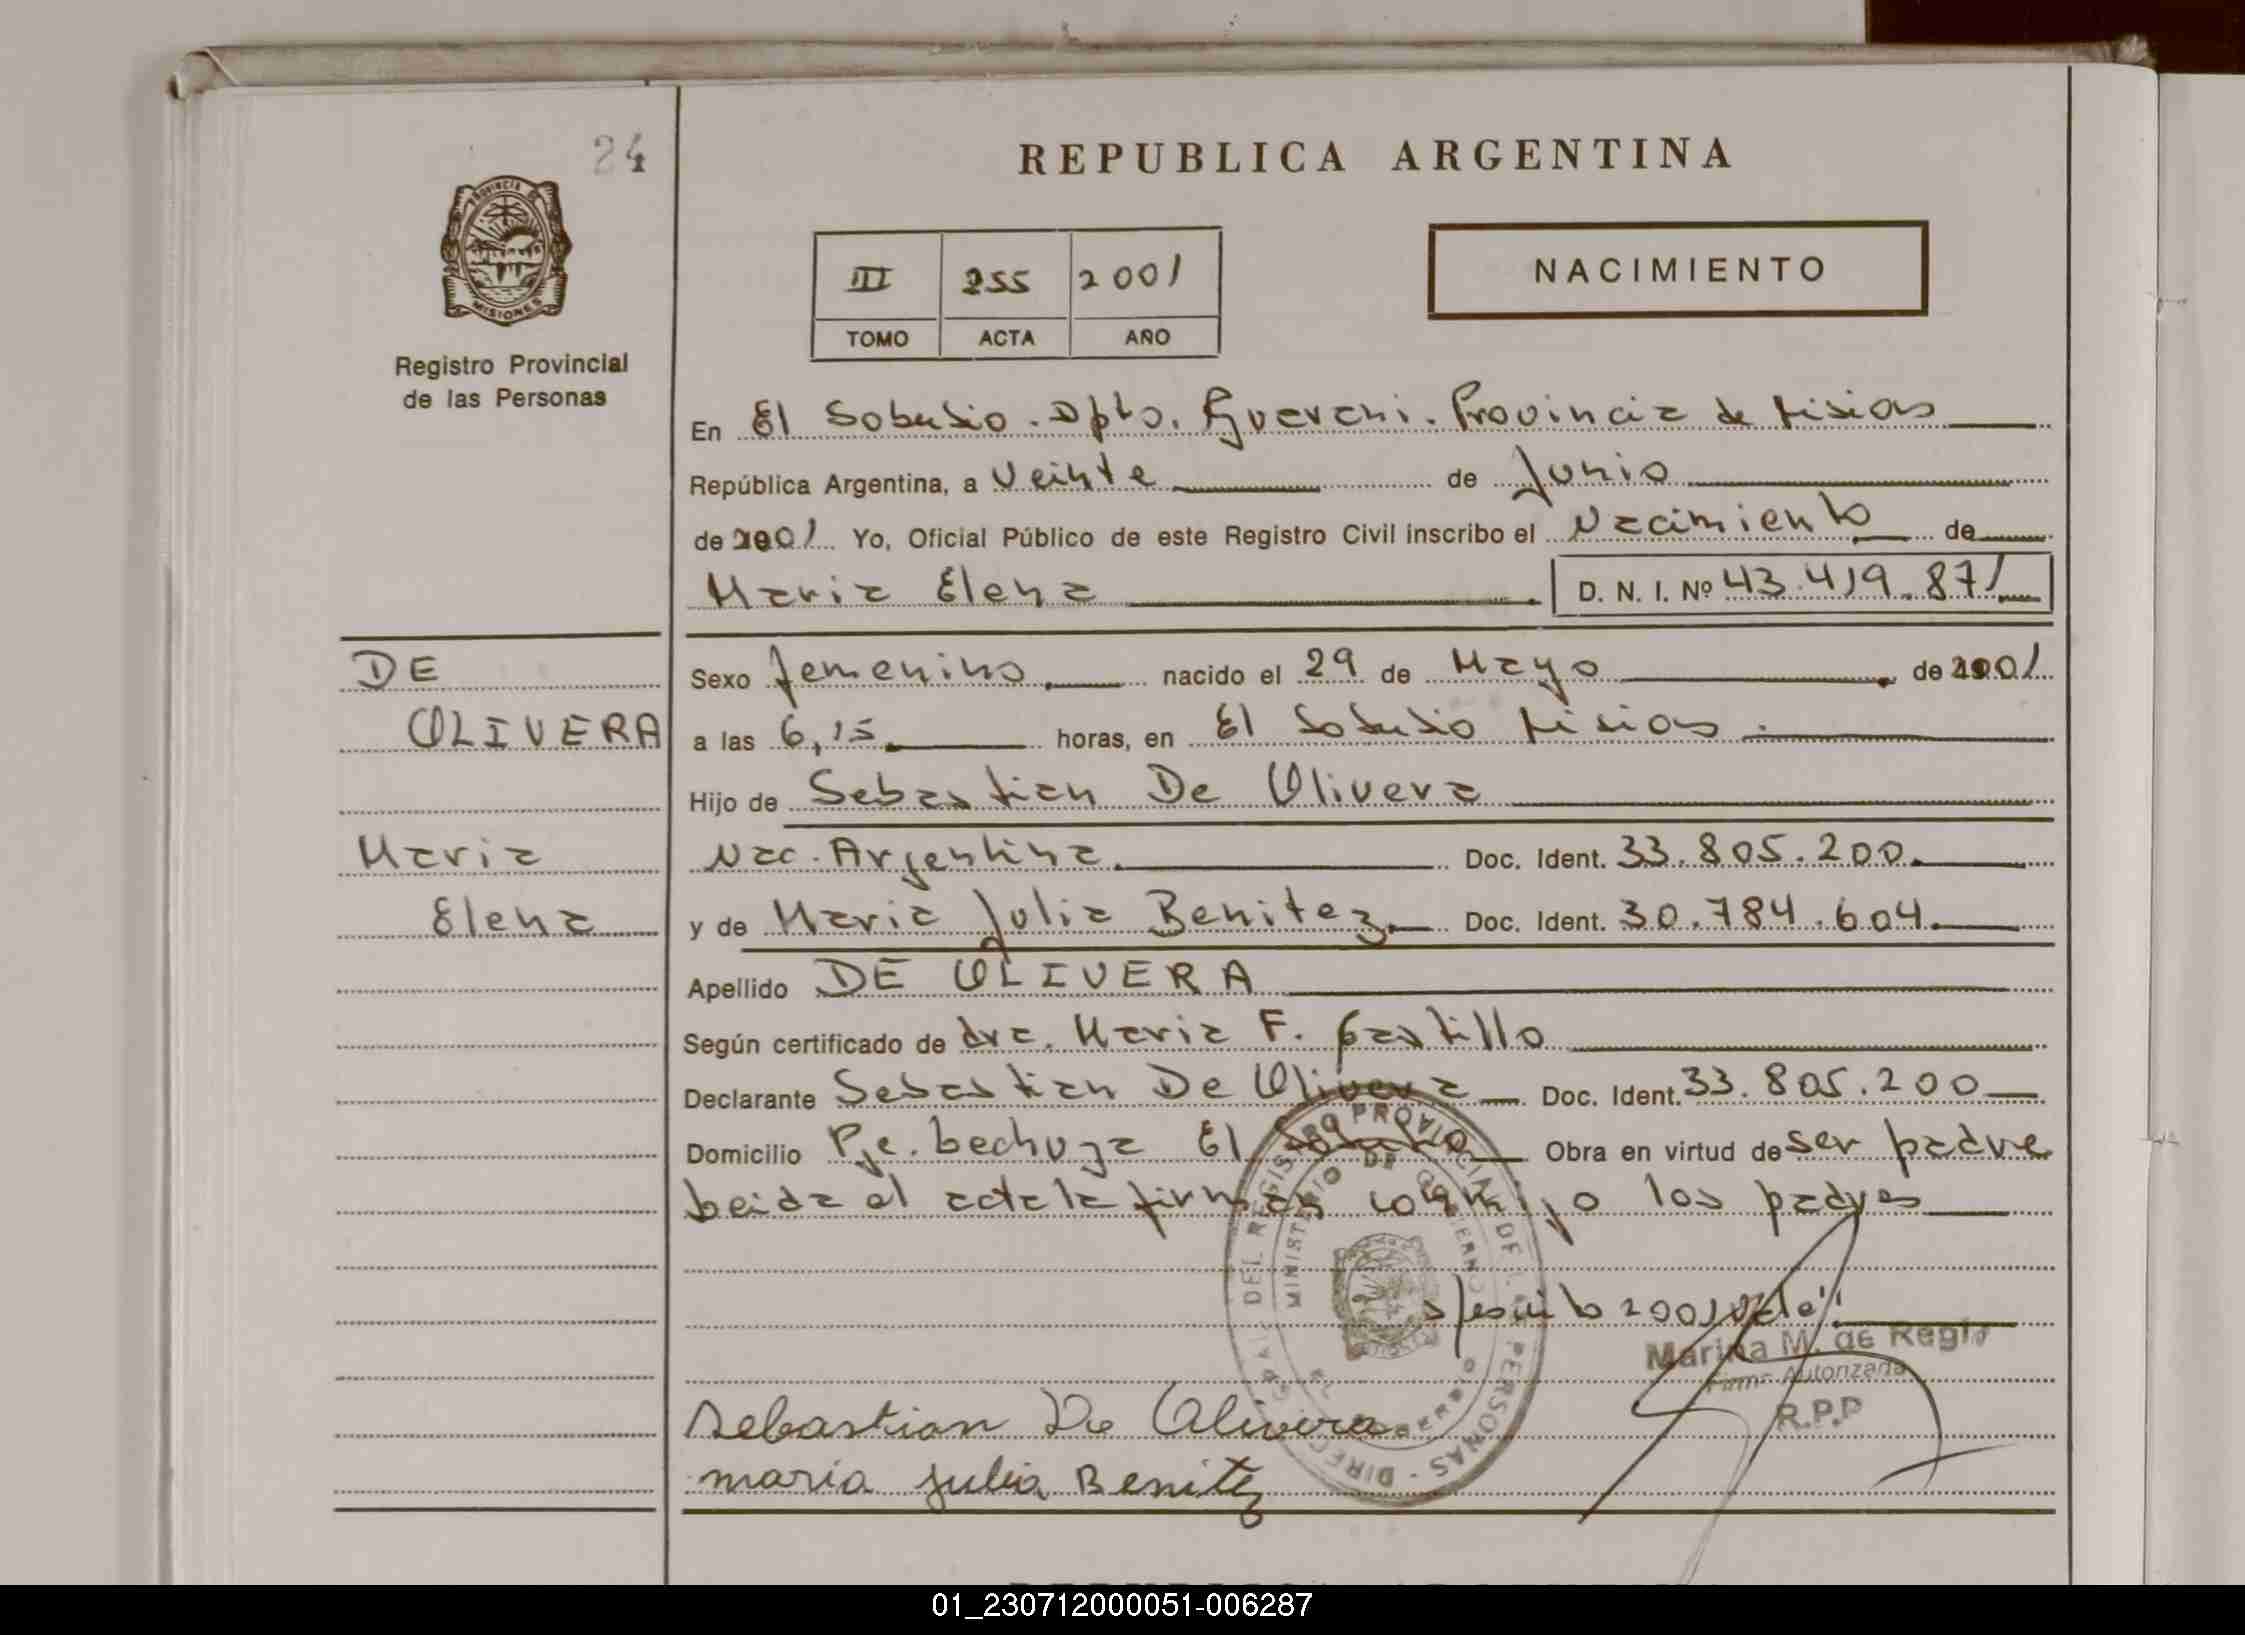 24
REPUBLICA ARGENTINA
PROVINCIA DE
MISIONES
III 255 2001
TOMO ACTA AÑO
NACIMIENTO
Registro Provincial
de las Personas
En El Soberbio. Dpto. Guarani. Provincia de Misiones
República Argentina, a Veinte de Junio
de 2001 Yo, Oficial Público de este Registro Civil inscribo el Nacimiento de
Maria Elena D. N. I. Nº 43.419.871
DE
OLIVERA
Maria
Elena
Sexo femenino nacido el 29 de Mayo de 2001
a las 6,15 horas, en El Soberbio Misiones
Hijo de Sebastian De Olivera
Nac. Argentina. Doc. Ident. 33.805.200.
y de Maria Julia Benitez. Doc. Ident. 30.784.604.
Apellido DE OLIVERA
Según certificado de dra. Maria F. Castillo
Declarante Sebastian De Olivera Doc. Ident. 33.805.200
Domicilio Pje. Lechuza El Soberbio Obra en virtud de ser padre
Leida el acta la firman conmigo los padres
2001 Vale"
Marina M. de Regis
Firma Autorizada
R.P.P
DIREC. GRAL. DEL REGISTRO PROVINCIAL DE LAS PERSONAS
MINISTERIO DE GOBIERNO
Sebastian De Olivera
maria julia Benitez
01_230712000051-006287